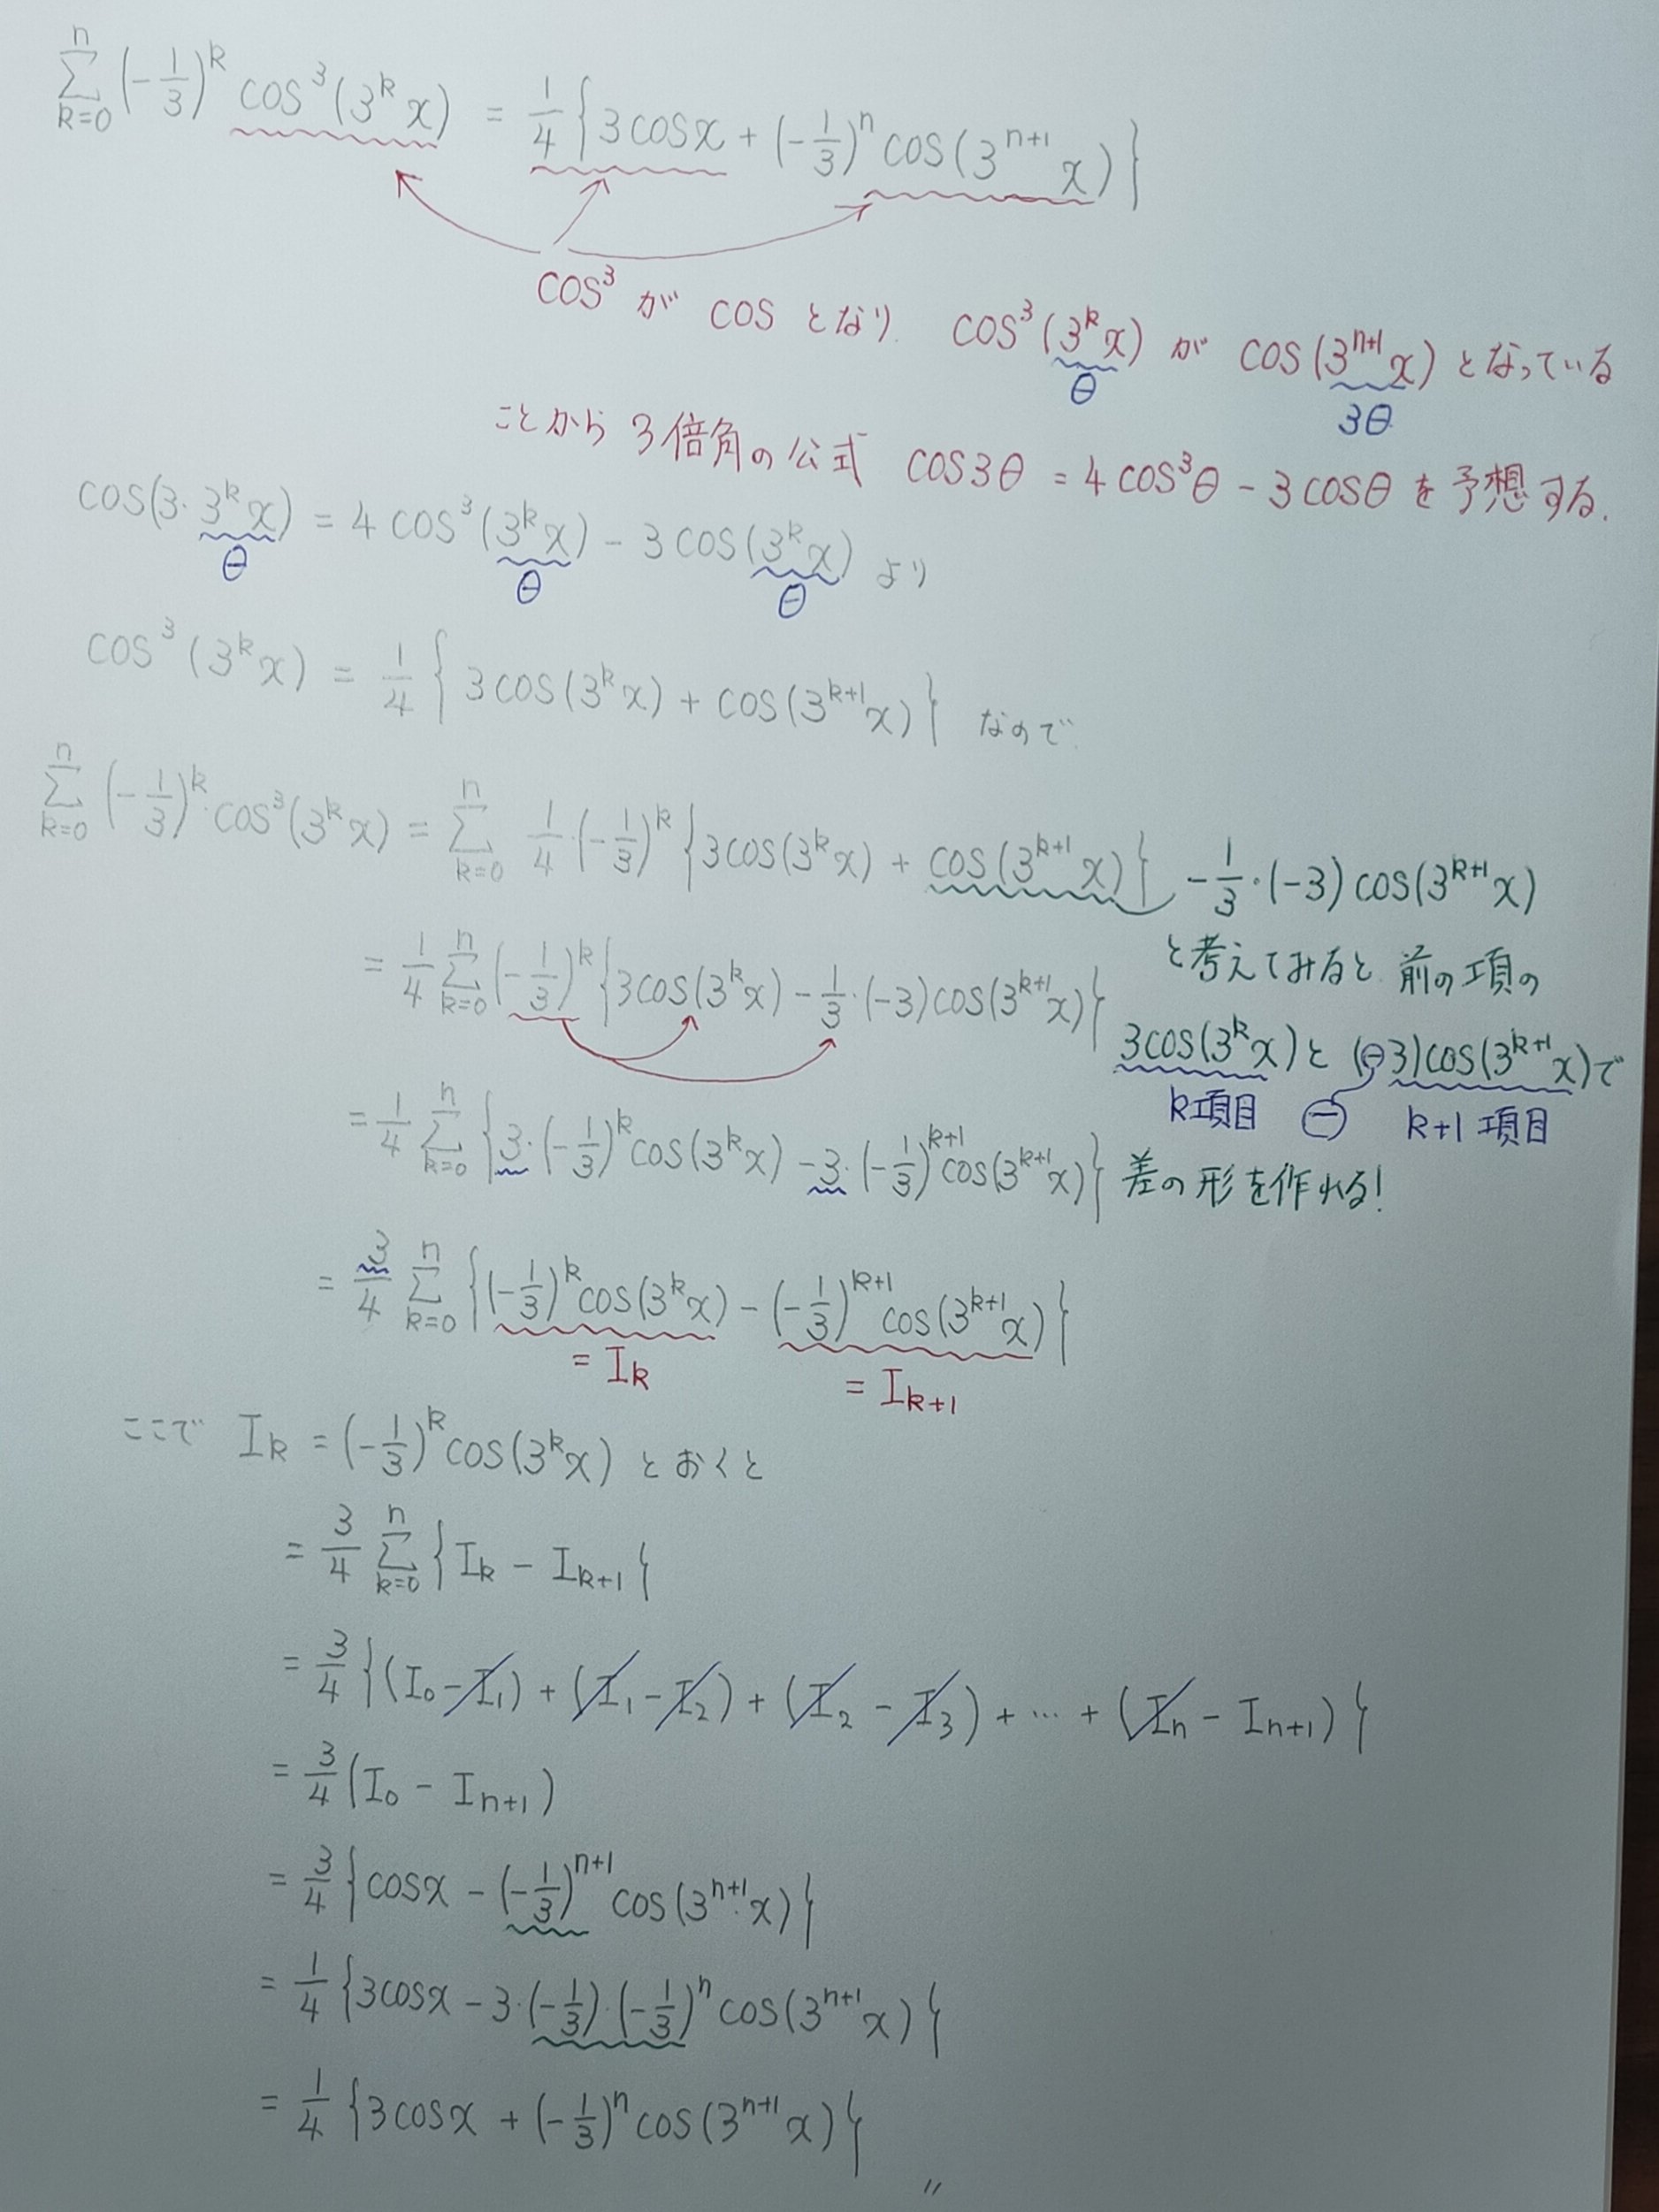 $\sum_{k=0}^{n} \left(-\frac{1}{3}\right)^k \cos^3(3^k x) = \frac{1}{4}\left\{3\cos x + \left(-\frac{1}{3}\right)^n \cos(3^{n+1} x)\right\}$
$\cos^3$ が $\cos$ となり $\cos^3(3^k x)$ が $\cos(3^{n+1} x)$ となっている
θ 3θ
ことから 3倍角の公式 $\cos 3θ = 4\cos^3 θ - 3\cos θ$ を予想する.
$\cos(3 \cdot 3^k x) = 4\cos^3(3^k x) - 3\cos(3^k x)$ より
θ θ θ
$\cos^3(3^k x) = \frac{1}{4}\left\{3\cos(3^k x) + \cos(3^{k+1} x)\right\}$ なので
$\sum_{k=0}^{n} \left(-\frac{1}{3}\right)^k \cdot \cos^3(3^k x) = \sum_{k=0}^{n} \frac{1}{4} \cdot \left(-\frac{1}{3}\right)^k \left\{3\cos(3^k x) + \cos(3^{k+1} x)\right\}$
$-\frac{1}{3} \cdot (-3)\cos(3^{k+1} x)$
と考えてみると 前の項の
$3\cos(3^k x)$ と $(-3)\cos(3^{k+1} x)$ で
k項目 ⊖ k+1項目
差の形を作れる!
$= \frac{1}{4} \sum_{k=0}^{n} \left(-\frac{1}{3}\right)^k \left\{3\cos(3^k x) - \frac{1}{3} \cdot (-3)\cos(3^{k+1} x)\right\}$
$= \frac{1}{4} \sum_{k=0}^{n} \left\{3 \cdot \left(-\frac{1}{3}\right)^k \cos(3^k x) - 3 \cdot \left(-\frac{1}{3}\right)^{k+1} \cos(3^{k+1} x)\right\}$
$= \frac{3}{4} \sum_{k=0}^{n} \left\{\left(-\frac{1}{3}\right)^k \cos(3^k x) - \left(-\frac{1}{3}\right)^{k+1} \cos(3^{k+1} x)\right\}$
$= I_k$ $= I_{k+1}$
ここで $I_k = \left(-\frac{1}{3}\right)^k \cos(3^k x)$ とおくと
$= \frac{3}{4} \sum_{k=0}^{n} \left\{I_k - I_{k+1}\right\}$
$= \frac{3}{4}\left\{(I_0 - I_1) + (I_1 - I_2) + (I_2 - I_3) + \cdots + (I_n - I_{n+1})\right\}$
$= \frac{3}{4}(I_0 - I_{n+1})$
$= \frac{3}{4}\left\{\cos x - \left(-\frac{1}{3}\right)^{n+1} \cos(3^{n+1} x)\right\}$
$= \frac{1}{4}\left\{3\cos x - 3 \cdot \left(-\frac{1}{3}\right) \cdot \left(-\frac{1}{3}\right)^n \cos(3^{n+1} x)\right\}$
$= \frac{1}{4}\left\{3\cos x + \left(-\frac{1}{3}\right)^n \cos(3^{n+1} x)\right\}$
〃